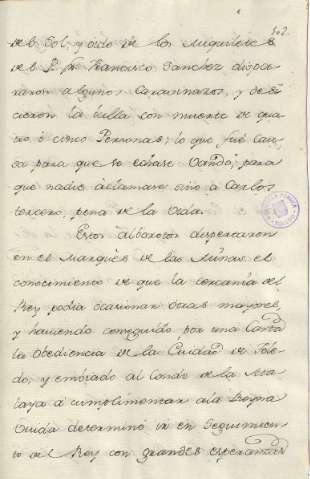 302
de el Sol, y oido de los Miqueletes
de el P. fr. Francisco Sanchez dispa-
raron algunos Carabinazos, y deshi-
cieron la bulla con muerte de qua-
tro ò cinco Personas, lo que fué cau-
sa para que se echase Vando, para
que nadie aclamase sino à Carlos
tercero, pena de la Vida.
Estos alborotos dispertaron
en el Marqués de las Minas el
conocimiento de que la cercanía del
Rey podia ocasionar otras mayores,
y haviendo conseguido por una Carta
la obediencia de la Ciudad de Tole-
do, y embiado al Conde de la Ata-
laya à cumplimentar à la Reyna
Viuda determinò ir en seguimien-
to del Rey con grandes esperanzas